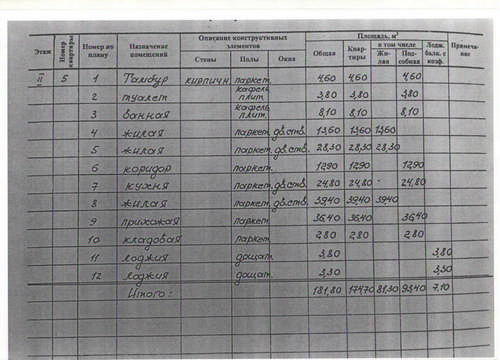 Этаж Номер квартиры Номер по плану Назначение помещений Описание конструктивных элементов Площадь, м² Примеча-ние
Стены Полы Окна Общая Квар-тиры в том числе Лодж. балк. с коэф.
Жи-лая Под-собная
5 1 Тамбур кирпичн паркет. 4,60 4,60 4,60
2 туалет кафель. плит. 3,80 3,80 3,80
3 ванная кафель. плит. 8,10 8,10 8,10
4 жилая паркет. дв.ств. 13,60 13,60 13,60
5 жилая паркет. дв.ств. 28,30 28,30 28,30
6 коридор паркет. 12,90 12,90 12,90
7 кухня паркет. дв.ств. 24,80 24,80 - 24,80
8 жилая паркет. дв.ств. 39,40 39,40 39,40
9 прихожая паркет. 36,40 36,40 36,40
10 кладовая паркет. 2,80 2,80 2,80
11 лоджия дощат. 3,80 3,80
12 лоджия дощат. 3,30 3,30
Итого: 181,80 174,70 81,30 93,40 7,10